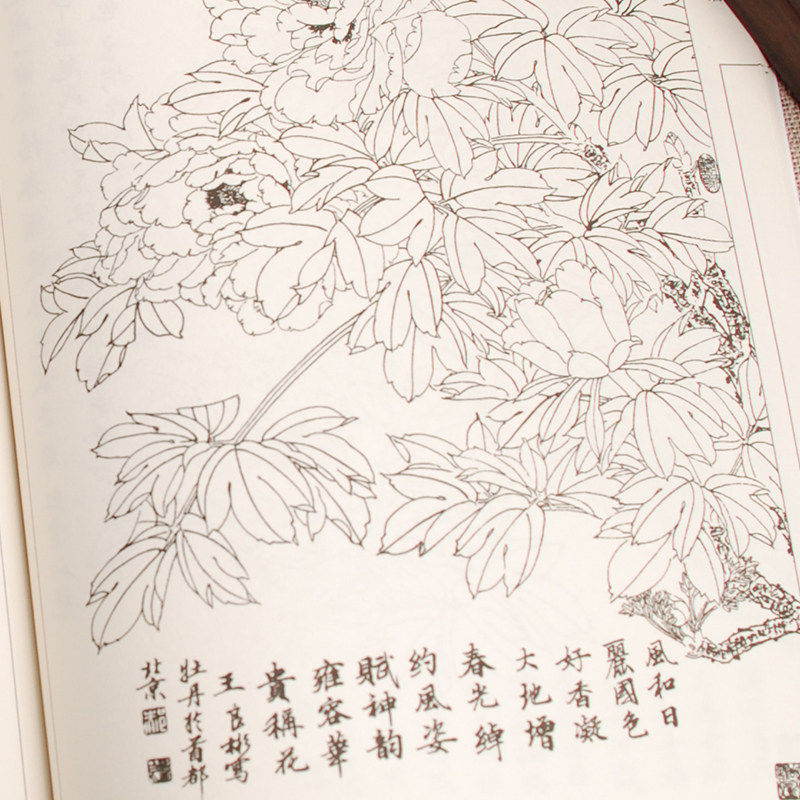 風和日
麗國色
好香凝
大地增
春光綽
約風姿
賦神韵
雍容華
貴稱花
王良彬寫
牡丹於首都
北京